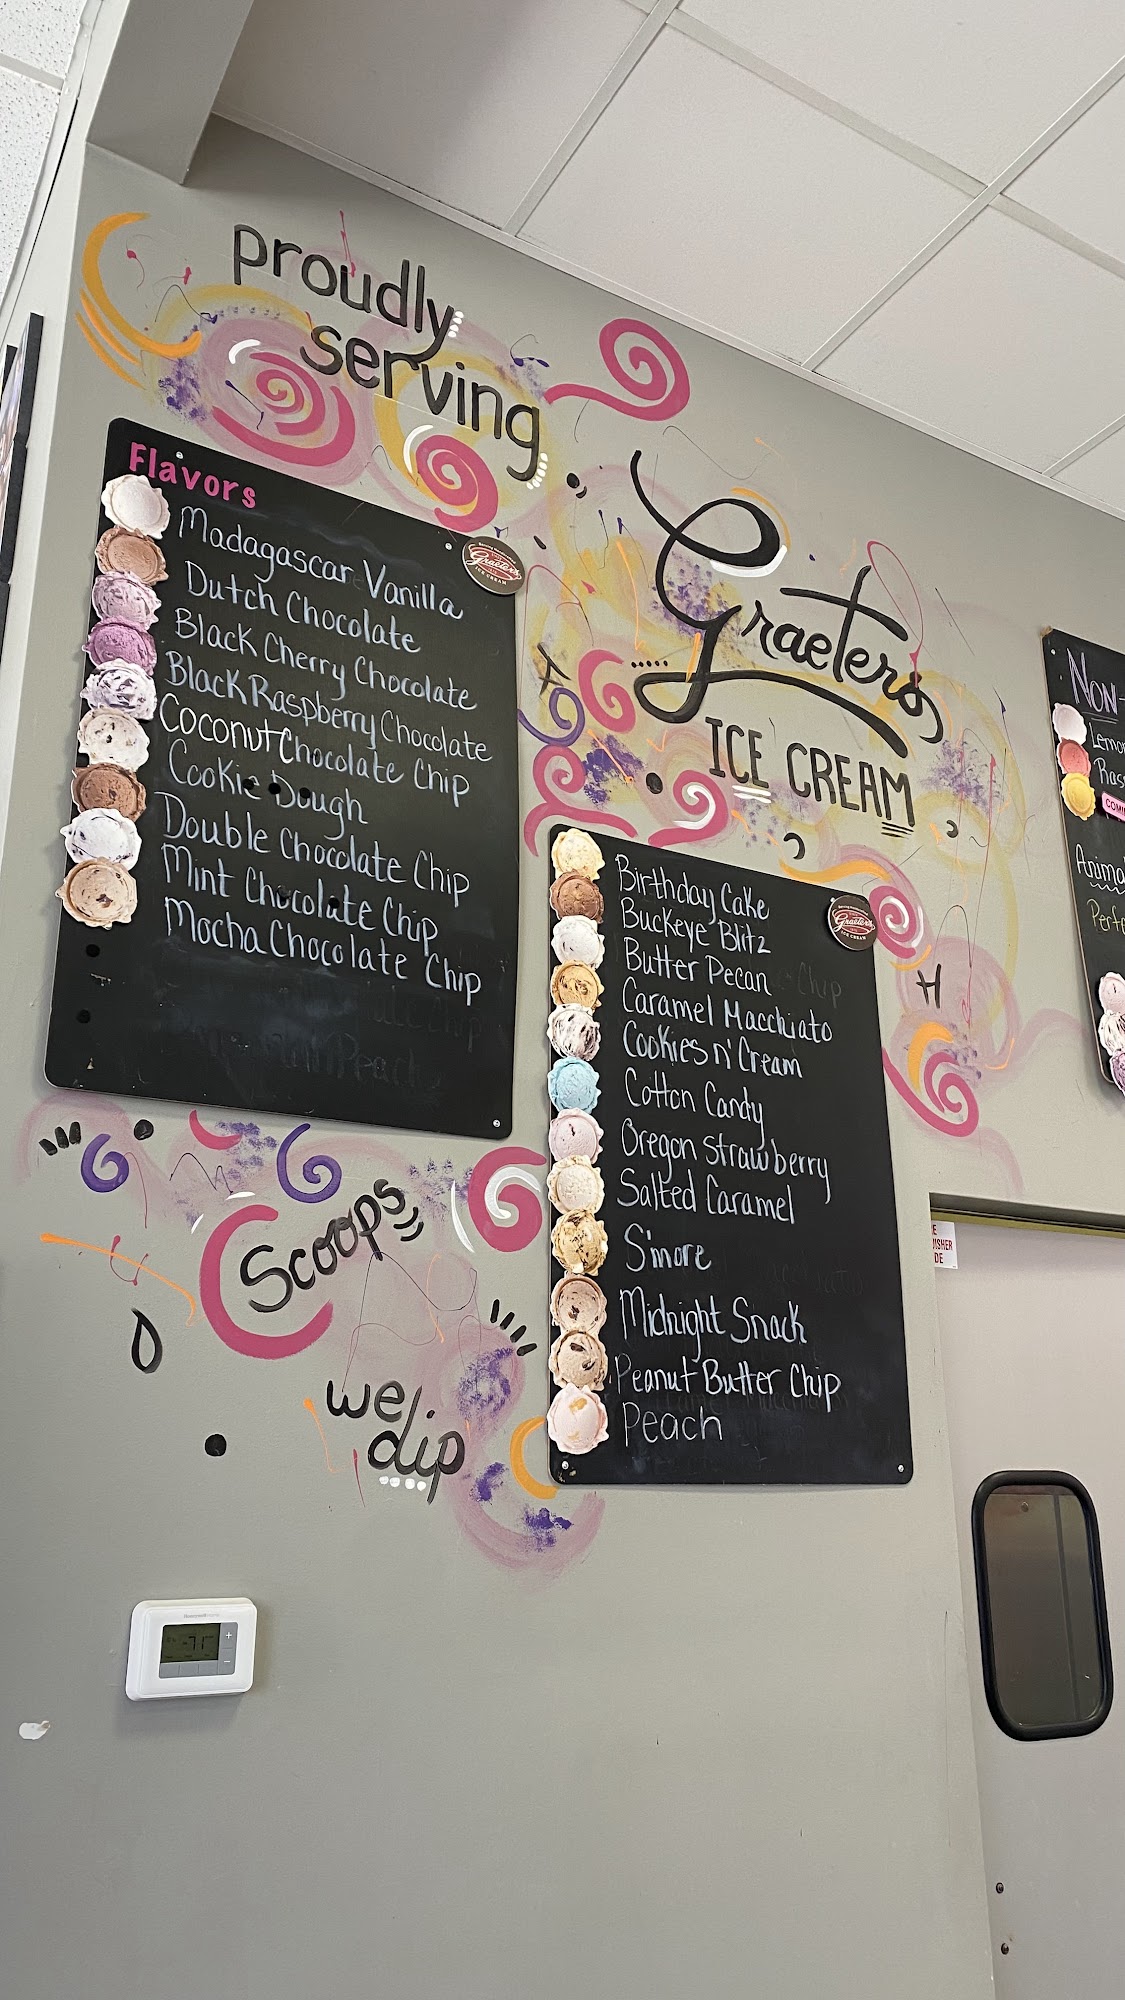 proudly
serving
Graeter's
ICE CREAM
Flavors
Madagascar Vanilla
Dutch Chocolate
Black Cherry Chocolate
Black Raspberry Chocolate
Coconut Chocolate Chip
Cookie Dough
Double Chocolate Chip
Mint Chocolate Chip
Mocha Chocolate Chip
Graeter's
ICE CREAM
Birthday Cake
Buckeye Blitz
Butter Pecan
Caramel Macchiato
Cookies n' Cream
Cotton Candy
Oregon Strawberry
Salted Caramel
S'more
Midnight Snack
Peanut Butter Chip
Peach
Graeter's
ICE CREAM
Scoops
we
dip
Non-
Lemo
Rasp
COMI
Anima
Perfe
Honeywell
71